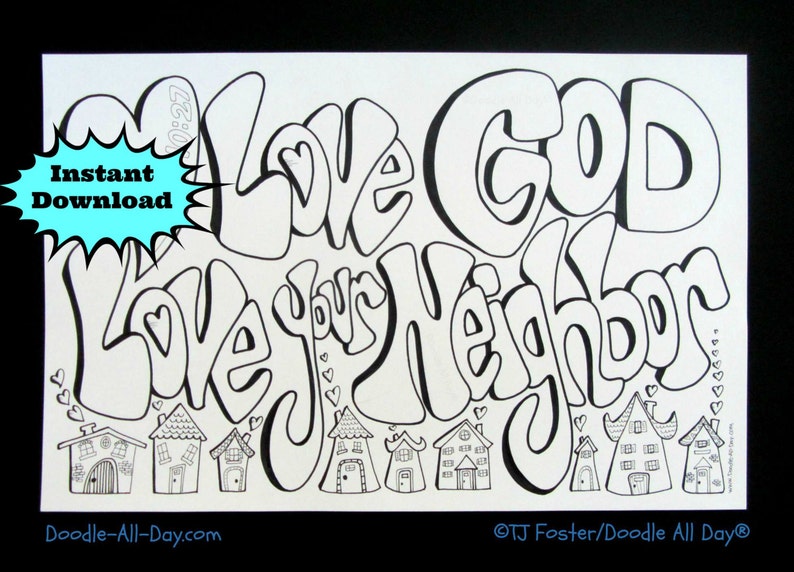 0:27
Love God
Instant
Download
Love your Neighbor
www.Doodle-All-Day.com
Doodle-All-Day.com
©TJ Foster/Doodle All Day®